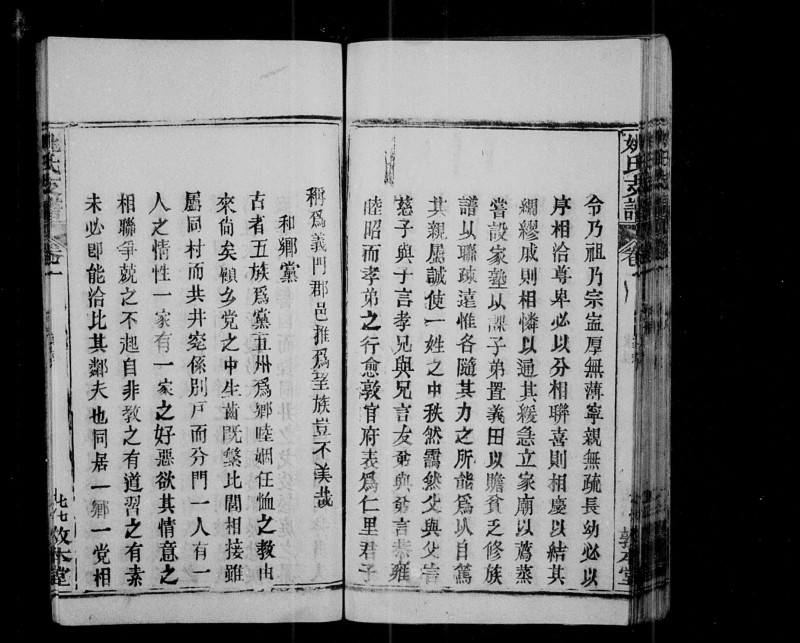 姚氏支譜
卷一
敦本堂
令乃祖乃宗寍厚無薄寧親無疏長幼必以
序相洽尊卑必以分相聯喜則相慶以結其
綢繆戚則相憐以通其緩急立家廟以薦蒸
嘗設家塾以課子弟置義田以贍貧乏修族
譜以聯疎遠惟各隨其力之所能爲以自篤
其親屬誠使一姓之中秩然靄然父與父言
慈子與子言孝兄與兄言友弟與弟言恭雍
睦昭而孝弟之行愈敦官府表爲仁里君子
稱爲義門郡邑推爲望族豈不美哉
和鄉黨
古者五族爲黨五州爲鄉睦婣任恤之教由
來尚矣顧鄉党之中生齒既繁比閭相接雖
屬同村而共井寔係別戸而分門一人有一
人之情性一家有一家之好惡欲其情意之
相聯爭兢之不起自非教之有道習之有素
未必即能洽比其鄰夫也同居一鄉一党相
姚氏支譜
卷一
敦本堂